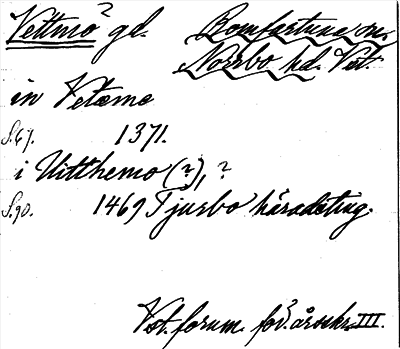 Vettmö? gd. Romfartuna sn.
Norrbo hd. Vst.
in Vetæmo
S.67. 1371.
i Vitthemo (?), ?
S.90. 1469 Tjurbo häradsting.
Vst. fornm. för. årsskr. III.